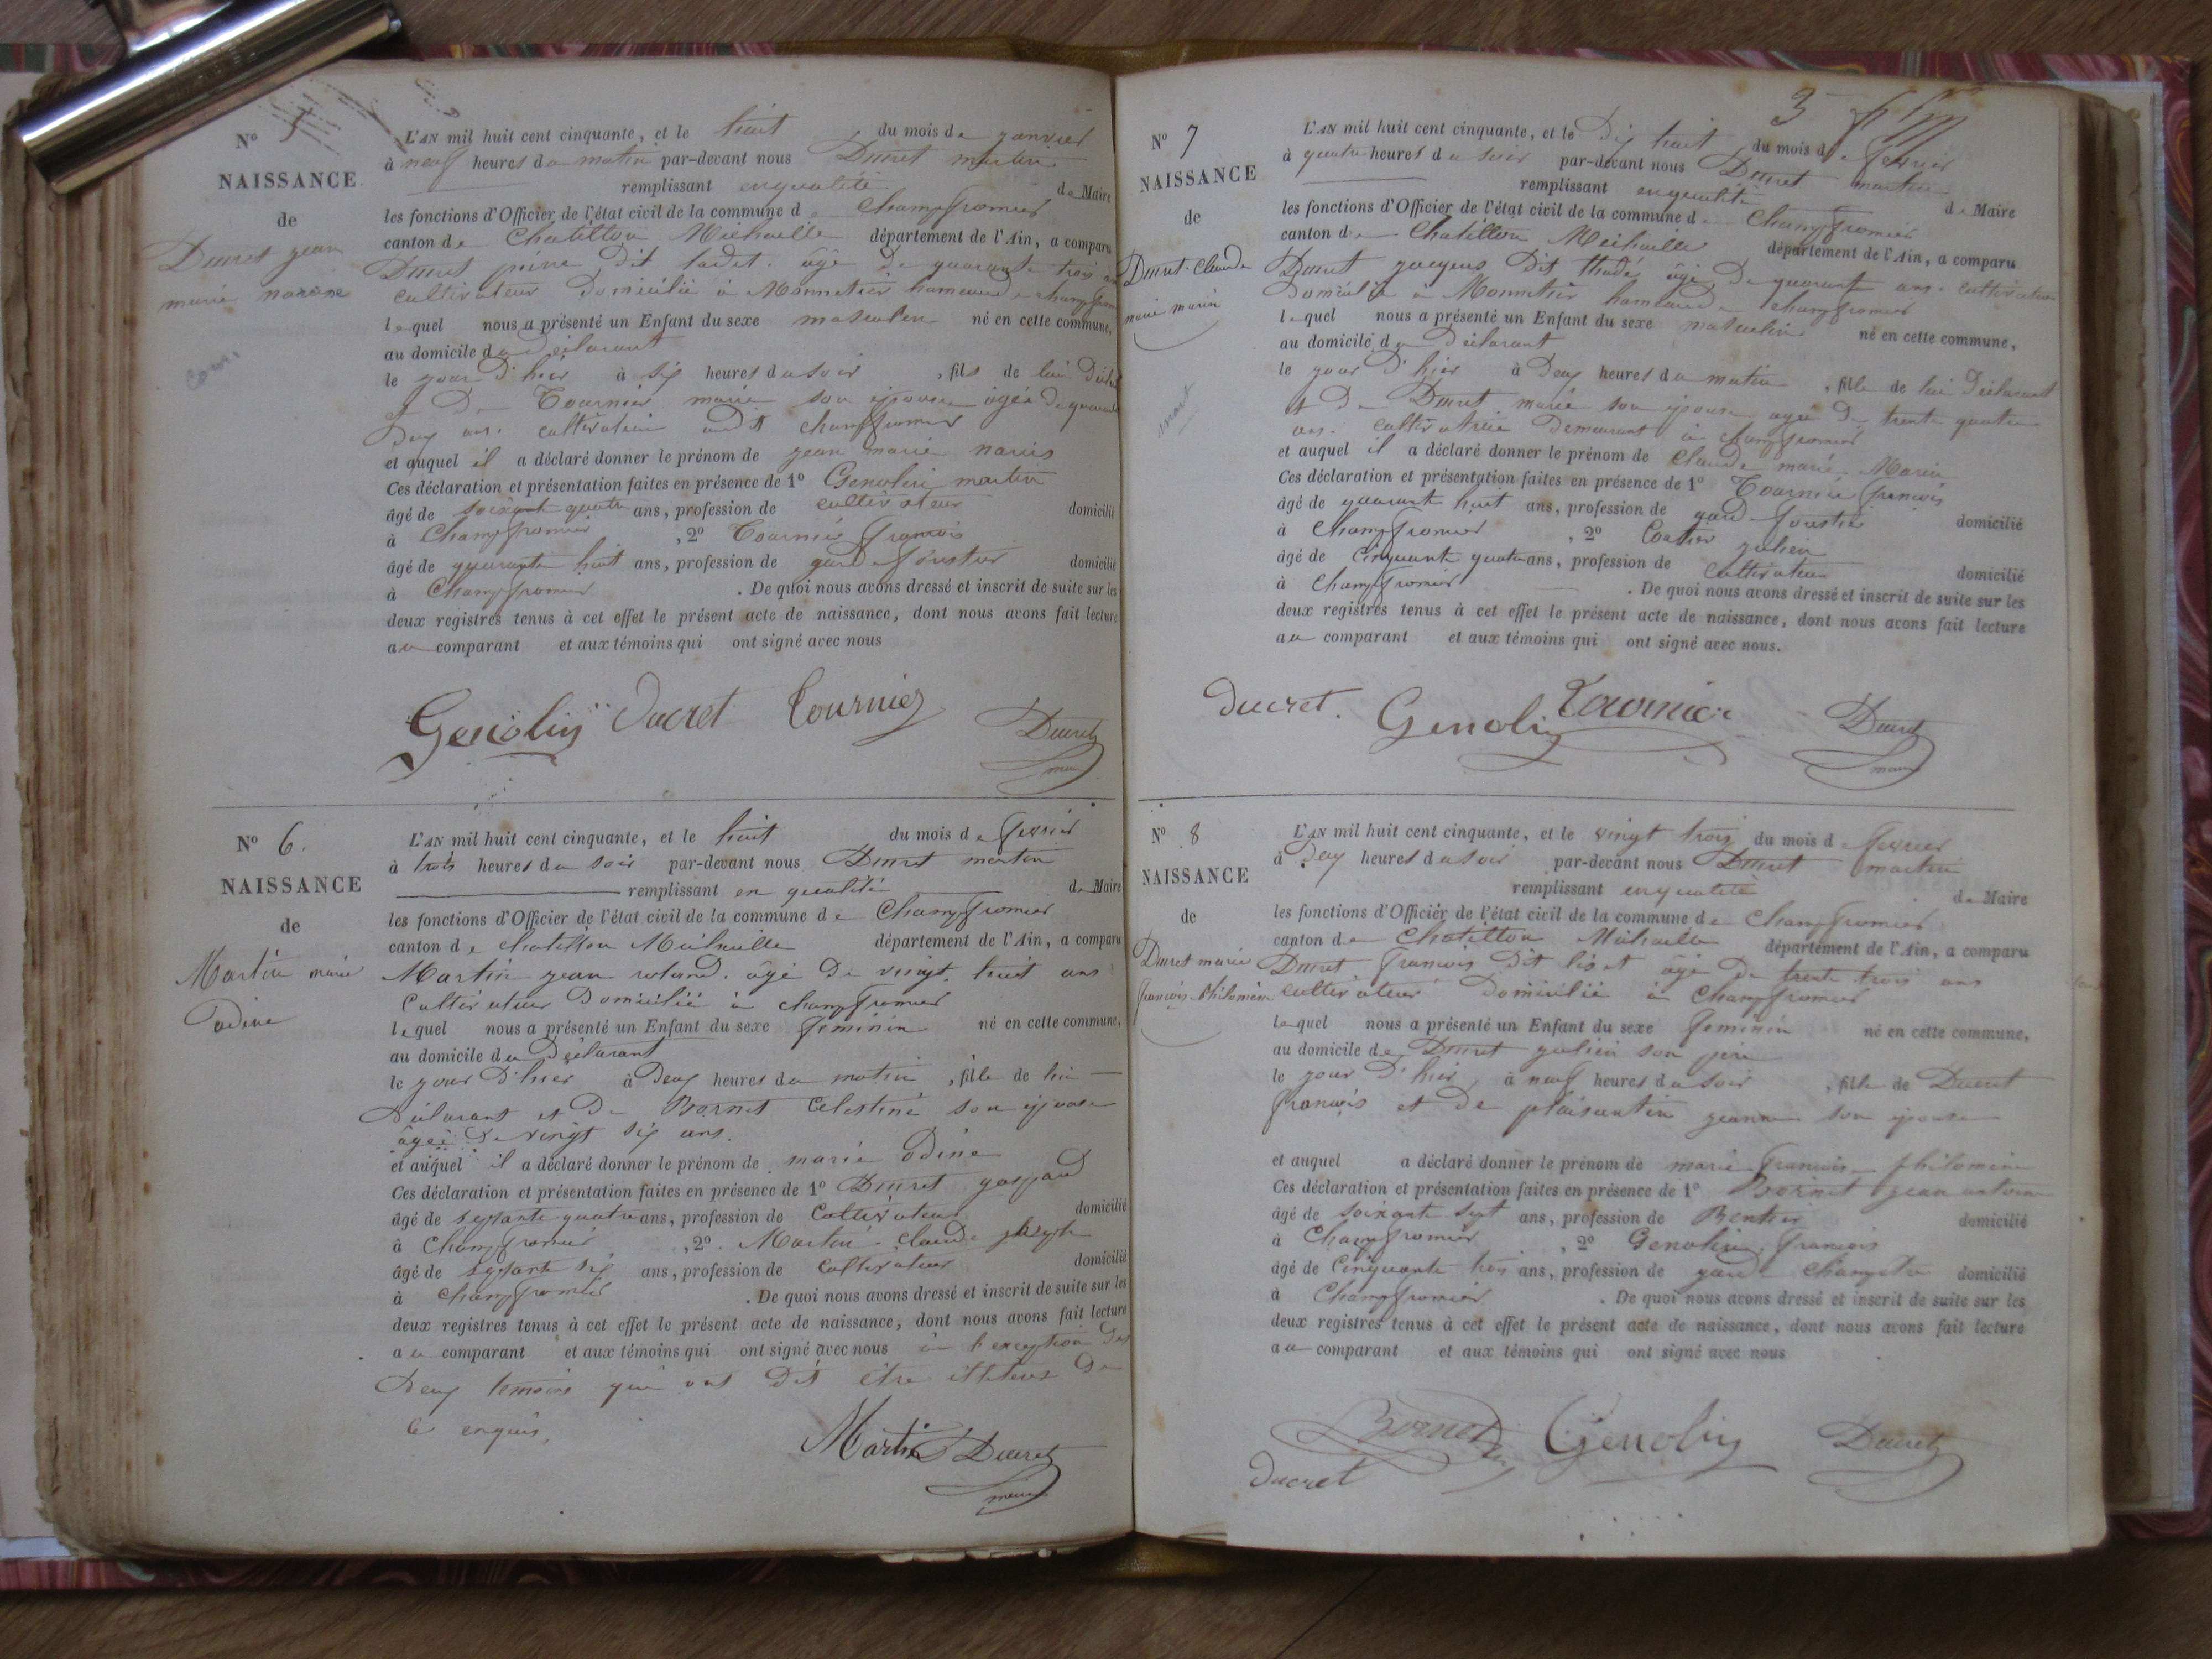 N° 5
NAISSANCE
de
Ducret jean
marie narcise
L'AN mil huit cent cinquante, et le huit du mois de janvier
à neuf heures du matin par-devant nous Ducret martin
remplissant en qualité de Maire
les fonctions d'Officier de l'état civil de la commune de Champfromier
canton de Chatillon Michaille département de l'Ain, a comparu
Ducret pierre dit cadet. âgé de quarante trois ans
cultivateur domicilié à Monnetier hameau de champfromier
lequel nous a présenté un Enfant du sexe masculin né en cette commune,
au domicile du déclarant
le jour d'hier à six heures du soir, fils de lui déclarant
et de Tournier marie son épouse âgée de quarante
deux ans. cultivatrice audit champfromier
et auquel il a déclaré donner le prénom de jean marie narcis
Ces déclaration et présentation faites en présence de 1° Genolin martin
âgé de soixante quatre ans, profession de cultivateur domicilié
à Champfromier, 2° Tournier francois
âgé de quarante huit ans, profession de garde forestier domicilié
à Champfromier. De quoi nous avons dressé et inscrit de suite sur les
deux registres tenus à cet effet le présent acte de naissance, dont nous avons fait lecture
au comparant et aux témoins qui ont signé avec nous
Genolin Ducret Tournier Ducret
maire
N° 6.
NAISSANCE
de
Martin marie
odine
L'AN mil huit cent cinquante, et le huit du mois de fevrier
à trois heures du soir par-devant nous Ducret martin
remplissant en qualité de Maire
les fonctions d'Officier de l'état civil de la commune de Champfromier
canton de chatillon Michaille département de l'Ain, a comparu
Martin jean roland. âgé de vingt huit ans
Cultivateur domicilié à champfromier
lequel nous a présenté un Enfant du sexe feminin né en cette commune,
au domicile du déclarant
le jour d'hier à deux heures du matin, fille de lui
déclarant et de Bornet Celestine son épouse
âgée de vingt six ans.
et auquel il a déclaré donner le prénom de marie odine
Ces déclaration et présentation faites en présence de 1° Ducret gaspard
âgé de septante quatre ans, profession de Cultivateur domicilié
à Champfromier, 2°. Martin claude joseph
âgé de septante six ans, profession de Cultivateur domicilié
à champfromier. De quoi nous avons dressé et inscrit de suite sur les
deux registres tenus à cet effet le présent acte de naissance, dont nous avons fait lecture
au comparant et aux témoins qui ont signé avec nous à l'exception des
deux temoins qui ont dit être illeteres de
ce enquis.
Martin Ducret
maire
3
N° 7
NAISSANCE
de
Ducret Claude
marie marin
L'AN mil huit cent cinquante, et le dix huit du mois de fevrier
à quatre heures du soir par-devant nous Ducret martin
remplissant en qualité de Maire
les fonctions d'Officier de l'état civil de la commune de Champfromier
canton de Chatillon Michaille département de l'Ain, a comparu
Ducret jacques dit thadé âgé de quarante ans. cultivateur
domicilié à Monnetier hameau de champfromier
lequel nous a présenté un Enfant du sexe masculin né en cette commune,
au domicile du déclarant
le jour d'hier à deux heures du matin, fils de lui déclarant
et de Ducret marie son épouse agée de trente quatre
ans. cultivatrice demeurant à champfromier
et auquel il a déclaré donner le prénom de Claude marie Marin
Ces déclaration et présentation faites en présence de 1° Tournier francois
âgé de quarante huit ans, profession de garde forestier domicilié
à Champfromier, 2° Coutier julien
âgé de Cinquante quatre ans, profession de cultivateur domicilié
à Champfromier. De quoi nous avons dressé et inscrit de suite sur les
deux registres tenus à cet effet le présent acte de naissance, dont nous avons fait lecture
au comparant et aux témoins qui ont signé avec nous.
Ducret. Genolin Tournier Ducret
maire
N° 8
NAISSANCE
de
Ducret marie
françois philomène
L'AN mil huit cent cinquante, et le vingt trois du mois de fevrier
à deux heures du soir par-devant nous Ducret martin
remplissant en qualité de Maire
les fonctions d'Officier de l'état civil de la commune de Champfromier
canton de Chatillon Michaille département de l'Ain, a comparu
Ducret francois dit âgé de trente trois ans
cultivateur domicilié à Champfromier
lequel nous a présenté un Enfant du sexe feminin né en cette commune,
au domicile de Ducret julien son père
le jour d'hier, à neuf heures du soir, fille de Ducret
francois et de plaisantin jeanne son épouse
et auquel a déclaré donner le prénom de marie francoise philomène
Ces déclaration et présentation faites en présence de 1° Bornet jean antoine
âgé de soixante sept ans, profession de Rentier domicilié
à Champfromier, 2° Genolin francois
âgé de Cinquante trois ans, profession de garde champetre domicilié
à Champfromier. De quoi nous avons dressé et inscrit de suite sur les
deux registres tenus à cet effet le présent acte de naissance, dont nous avons fait lecture
au comparant et aux témoins qui ont signé avec nous
Bornet Genolin Ducret
Ducret